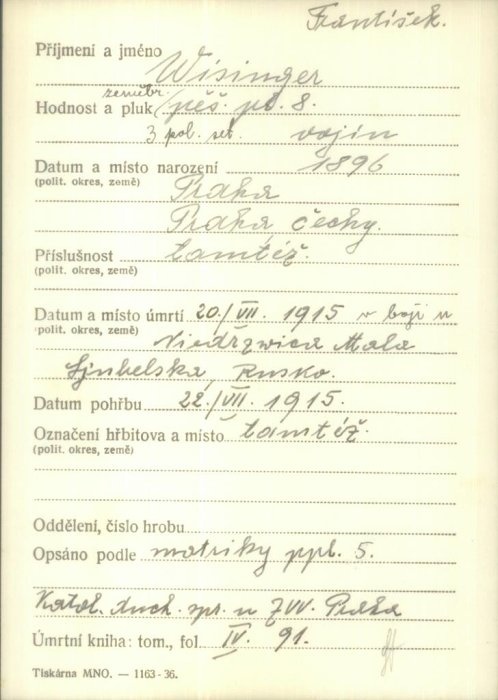 František.
Příjmení a jméno Wisinger
zeměbr.
Hodnost a pluk pěš. pl. 8.
3 pol. set. vojín
Datum a místo narození 1896
(polit. okres, země) Praha
Praha, Čechy.
Příslušnost tamtéž.
(polit. okres, země)
Datum a místo úmrtí 20./VII. 1915 v boji u
(polit. okres, země) Niedrzwica Mala
Ljubelská, Rusko.
Datum pohřbu 22./VII. 1915.
Označení hřbitova a místo tamtéž.
(polit. okres, země)
Oddělení, číslo hrobu
Opsáno podle matriky ppl. 5.
Katol. duch. spr. u ZVV. Praha
Úmrtní kniha: tom., fol. IV. 91.
Tiskárna MNO. — 1163-36.